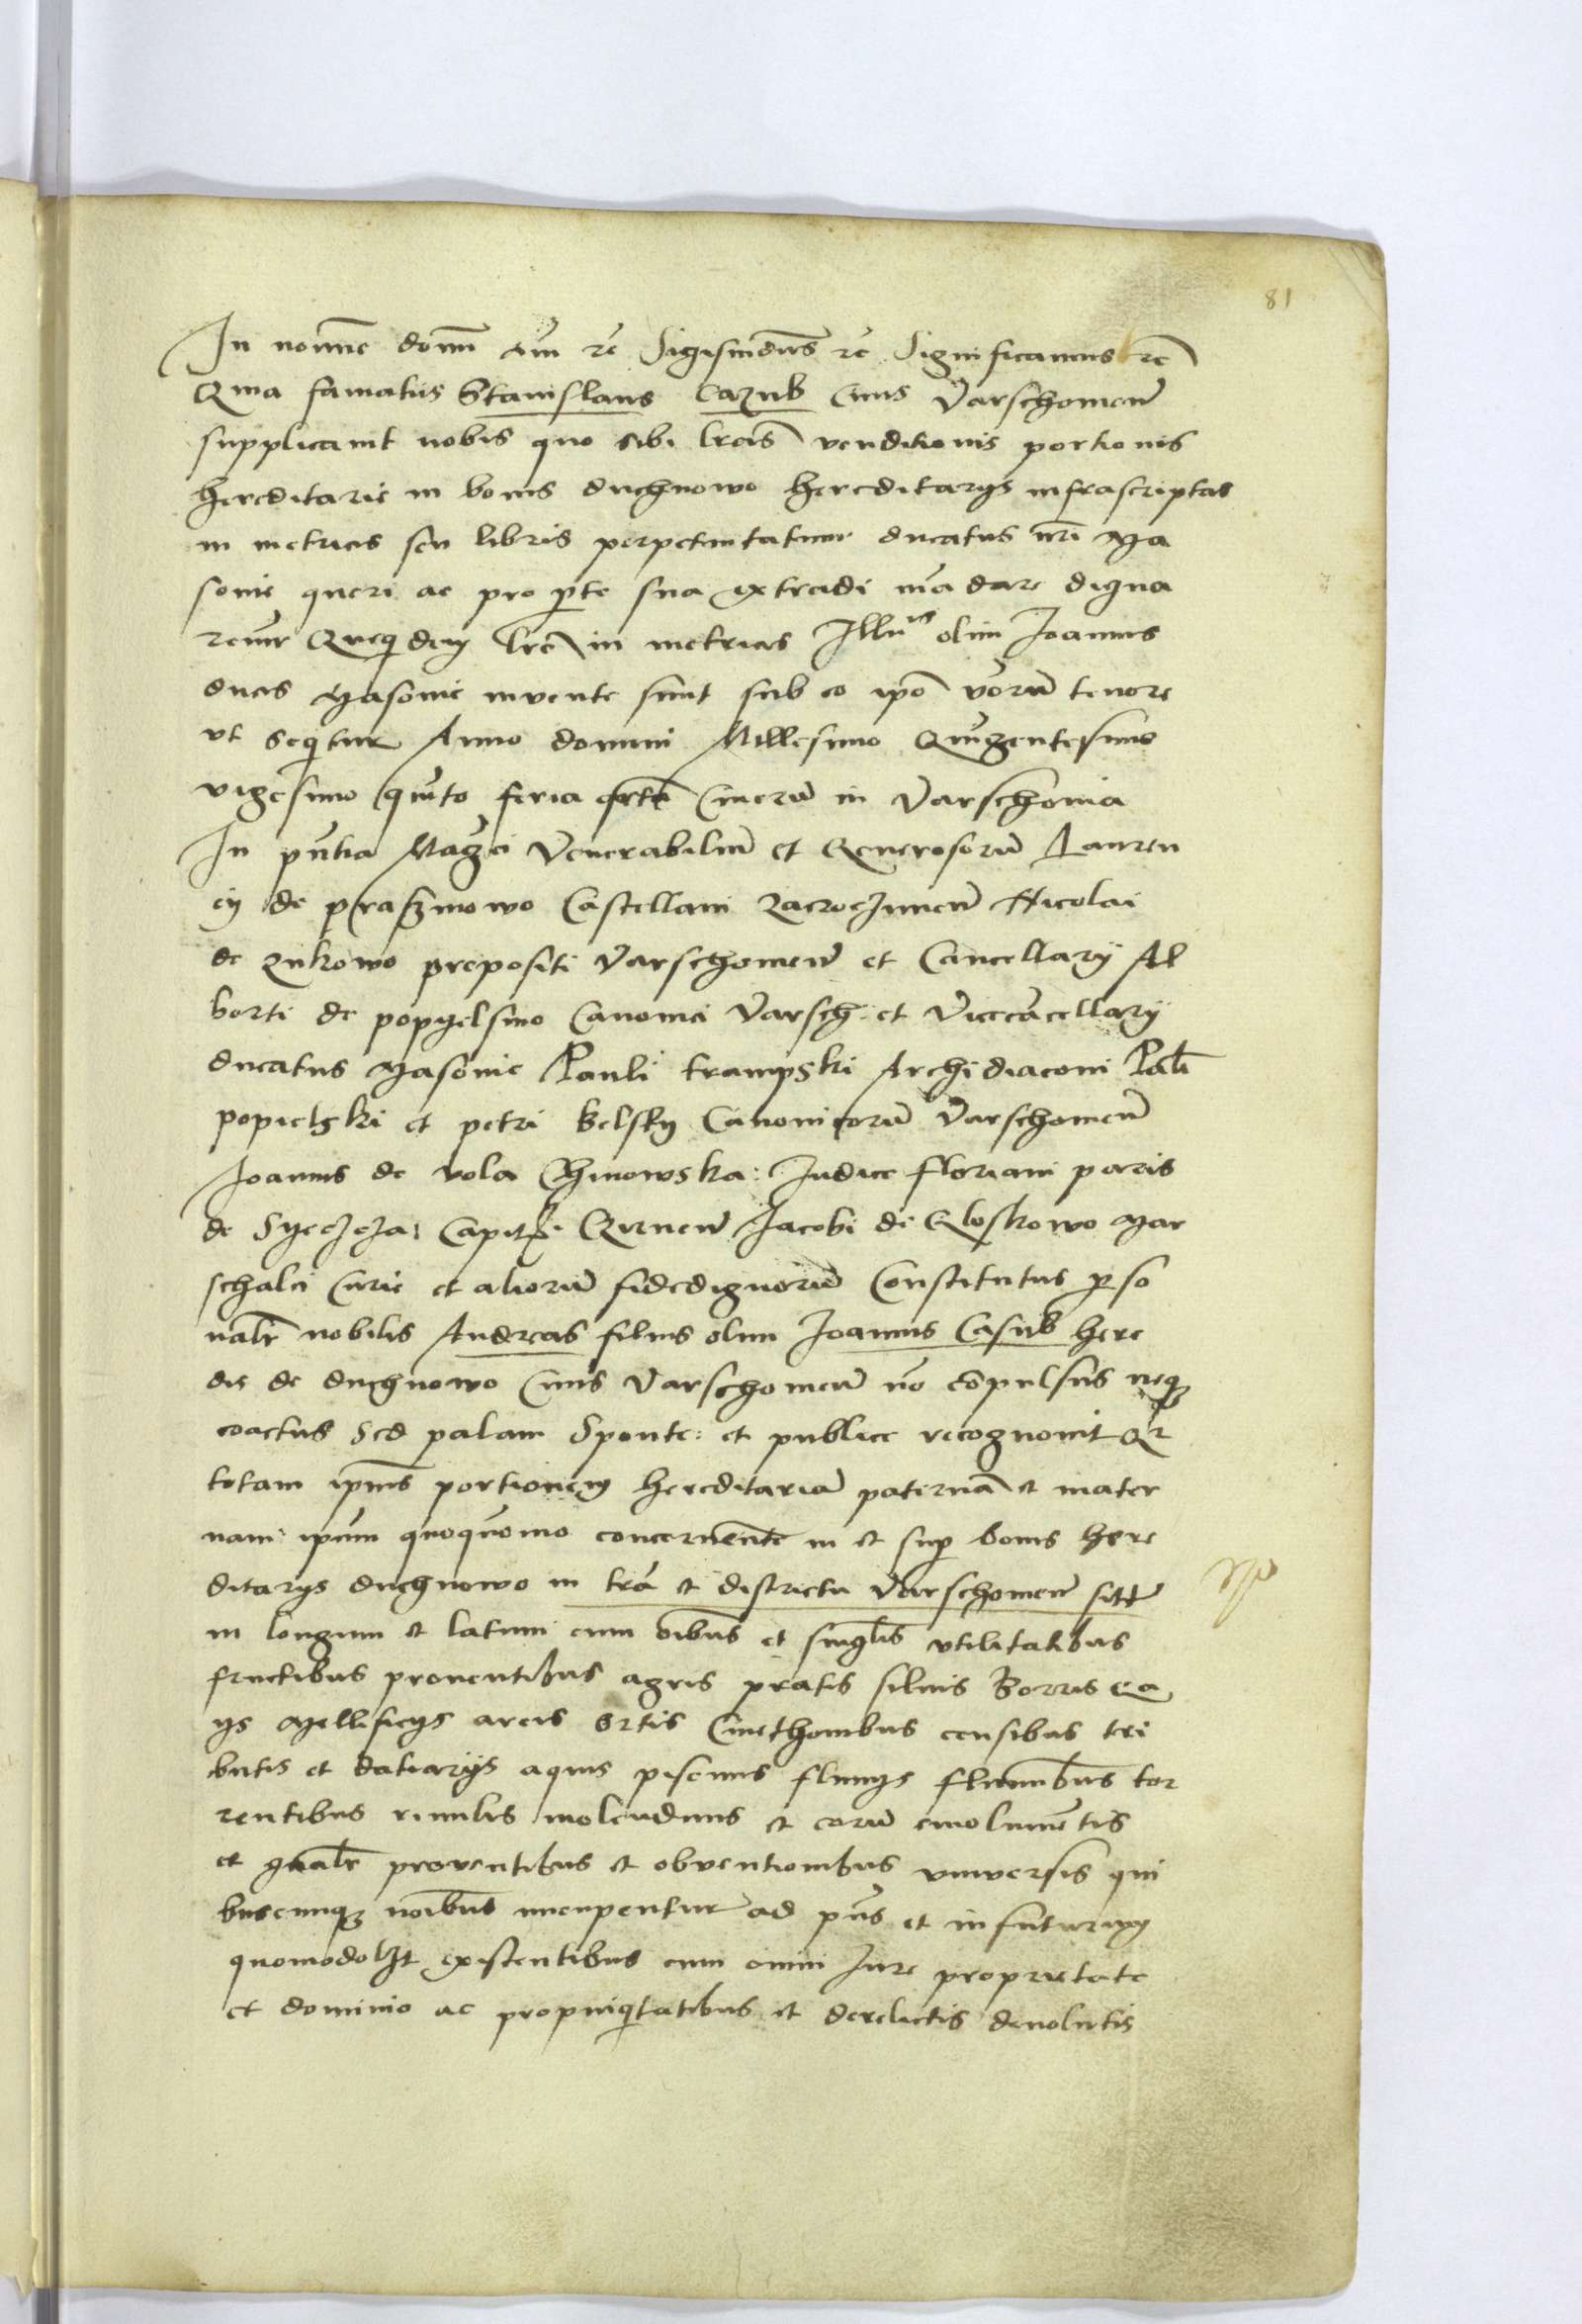 81
In nomine domini am rc Sigismundus rc Significamus rc
Quia famatus Stanislaus Cazub Ciuis Varschouien
supplicauit nobis quo sibi lras venditionis portionis
hereditarie in bonis duchnowo hereditarijs infrascriptas
in metrices seu libris perpetuitatum ducatus nri Ma
souie queri ac pro parte sua extradi madare digna
remur Quequidem lre in metrices Illu olim Joannis
ducis Masouie inuente sunt sub eo ipo verborum tenore
vt sequitur Anno domini Millesimo Quigentesimo
vigesimo quito feria qrta Cinerum in Varschouia
In pntia Magci Venerabilium et Generosorum Lauren
cij de praszmowo Castellani Zacroczimen Nicolai
de zukowo prepositi Varschouien et Cancellarij Al
berti de popyelsino Canonici Varsch: et Vicecancellarij
ducatus Masouie Pauli trampski Archidiaconi Pauli
popielski et petri belsky Canonicorum Varschouien
Joannis de vola Chinowska: Judice floriani paris
de Capit Jacobi de Gloskowo Mar
schalci Curie et aliorum fidedignorum Constitutus perso
nalr nobilis Andreas filius olim Joannis Casub here
dis de duchnowo Ciuis Varschouien no copulsus neque
coactus Sed palam Sponte: et publice recognouit Qr
totam ipius portionem hereditariam paternam et mater
nam ipum quoquomo concernente in et super bonis here
ditarijs duchnowo in tra et districtu Varschouien sitt
in longum et latum cum oibus et singlis vtilitatibus
fructibus prouentibus agris pratis siluis Borris Ga
ijs Mellificijs areis ortis Cmethonibus censibus tri
butis et datiarijs aquis piscinis fluuijs fluminibus tor
rentibus riuulis molendinis et earum emolumentis
et gnalr prouentibus et obventionibus vniuersis qui
buscunque noibus nuncupentur ad pns et in futurum
quomodolibet existentibus cum omni Jure proprietate
et dominio ac propinquitatibus et derelictis deuolutis